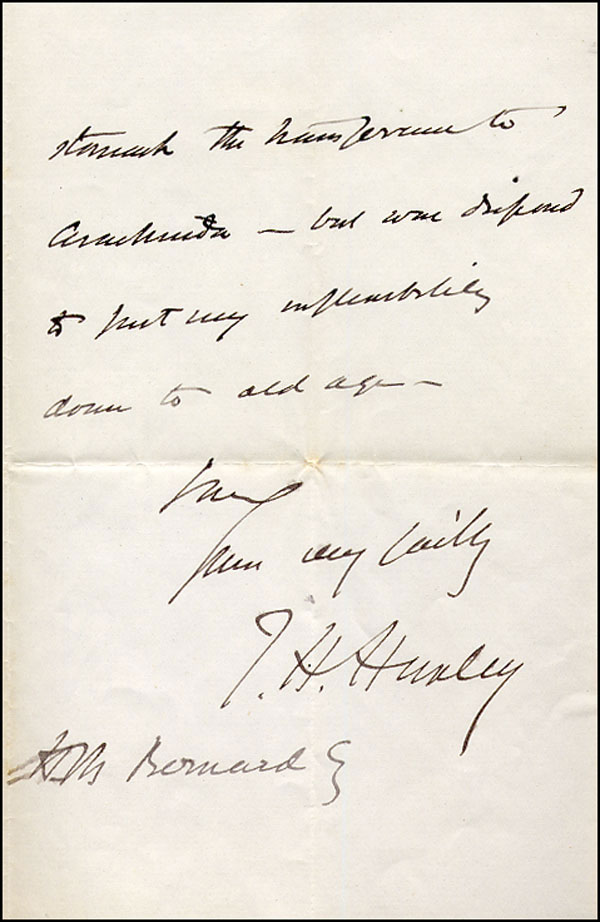 stomach the transference to
Arachnida — but was disposed
to put my inflexibility
down to old age —
I am
Yours very faithly
T. H. Huxley
H M Bernard Esq